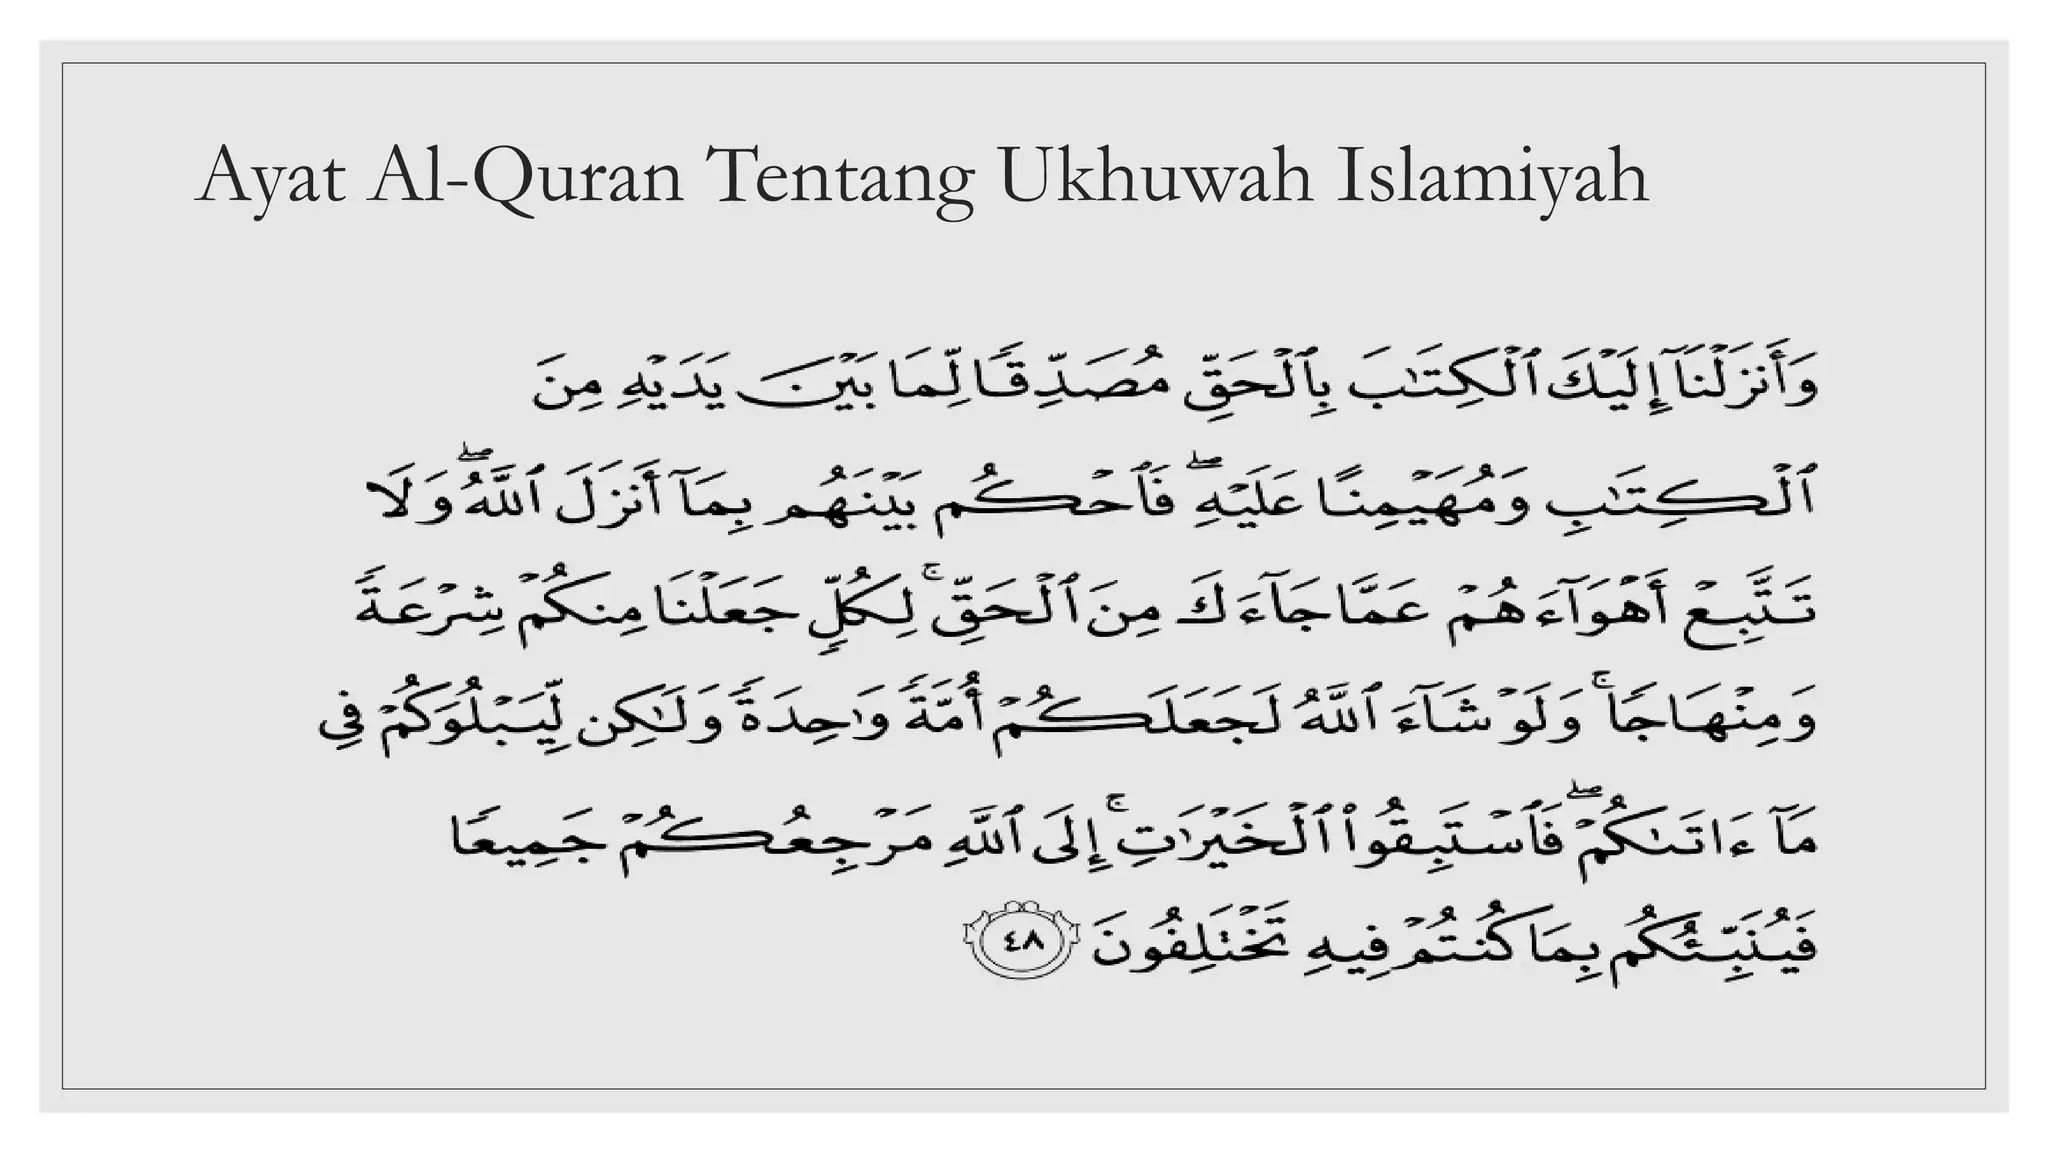 Ayat Al-Quran Tentang Ukhuwah Islamiyah
وَأَنزَلْنَآ إِلَيْكَ ٱلْكِتَـٰبَ بِٱلْحَقِّ مُصَدِّقًا لِّمَا بَيْنَ يَدَيْهِ مِنَ
ٱلْكِتَـٰبِ وَمُهَيْمِنًا عَلَيْهِ ۖ فَٱحْكُم بَيْنَهُم بِمَآ أَنزَلَ ٱللَّهُ ۖ وَلَا
تَتَّبِعْ أَهْوَآءَهُمْ عَمَّا جَآءَكَ مِنَ ٱلْحَقِّ ۚ لِكُلٍّ جَعَلْنَا مِنكُمْ شِرْعَةً
وَمِنْهَاجًا ۚ وَلَوْ شَآءَ ٱللَّهُ لَجَعَلَكُمْ أُمَّةً وَٰحِدَةً وَلَـٰكِن لِّيَبْلُوَكُمْ فِى
مَآ ءَاتَىٰكُمْ ۖ فَٱسْتَبِقُوا۟ ٱلْخَيْرَٰتِ ۚ إِلَى ٱللَّهِ مَرْجِعُكُمْ جَمِيعًا
فَيُنَبِّئُكُم بِمَا كُنتُمْ فِيهِ تَخْتَلِفُونَ ٤٨